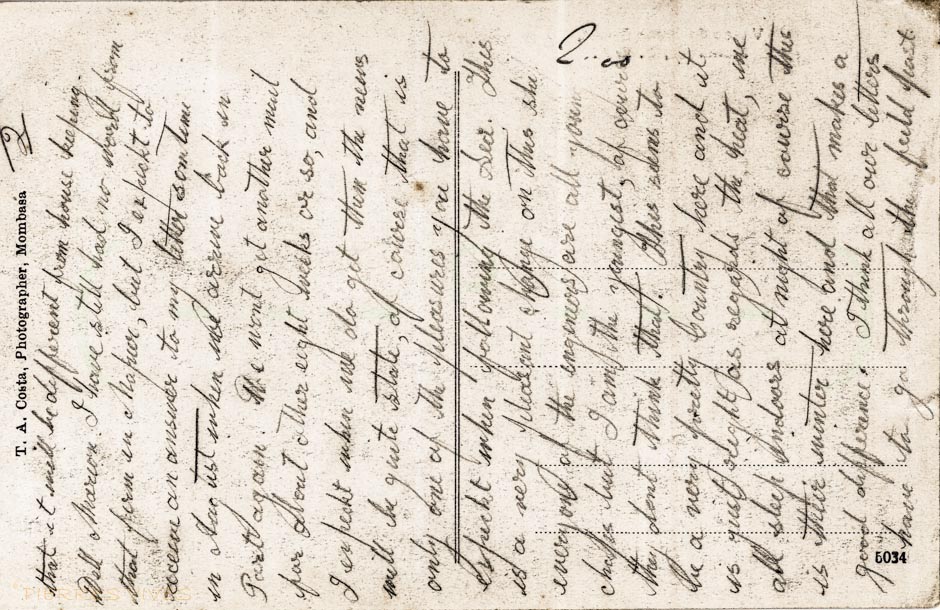 3
T. A. Costa, Photographer, Mombasa
that it will be different from house keeping.
Well Marion I have still had no work from
that firm in Napier, but I expect to
receive an answer to my letter some time
in August when we arrive back in
Port again. We wont get another mail
for about other eight weeks or so, and
I expect when we do get then the news
will be quite stale, of course that is
only one of the pleasures you have to
expect when following the Sea. This
is a very pleasant on this ship
everyone of the engineers are all young
chaps but I am the youngest, of course
they dont think that. This seems to
be a very pretty Country here and it
is just alright as regards the heat, we
all sleep indoors at night of course this
is their winter here and that makes a
good difference. I think all our letters
have to go through the field post
2
6034